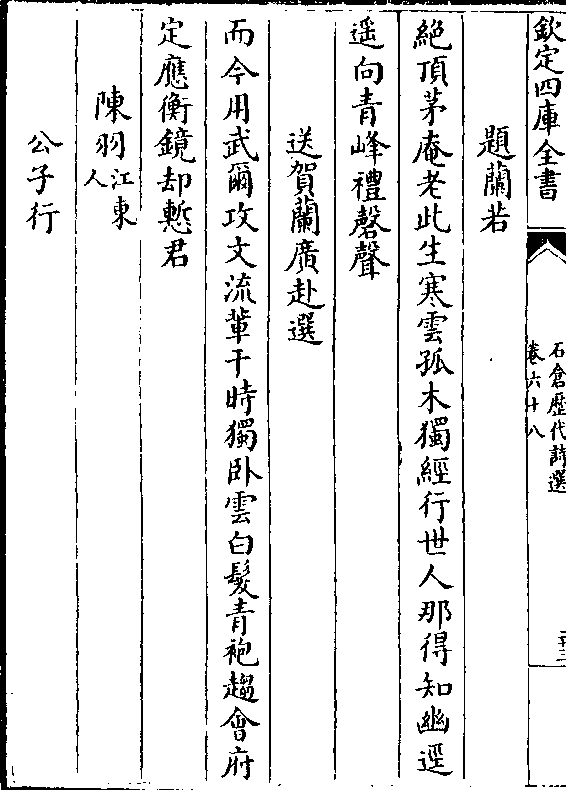 欽定四庫全書
石倉歴代詩選
卷六十八
題蘭若
絶頂茅庵老此生寒雲孤木獨經行世人那得知幽逕
遥向青峰禮磬聲
送賀蘭廣赴選
而今用武爾攻文流輩干時獨卧雲白髮青袍趨會府
定應衡鏡却慙君
陳羽江東人
公子行